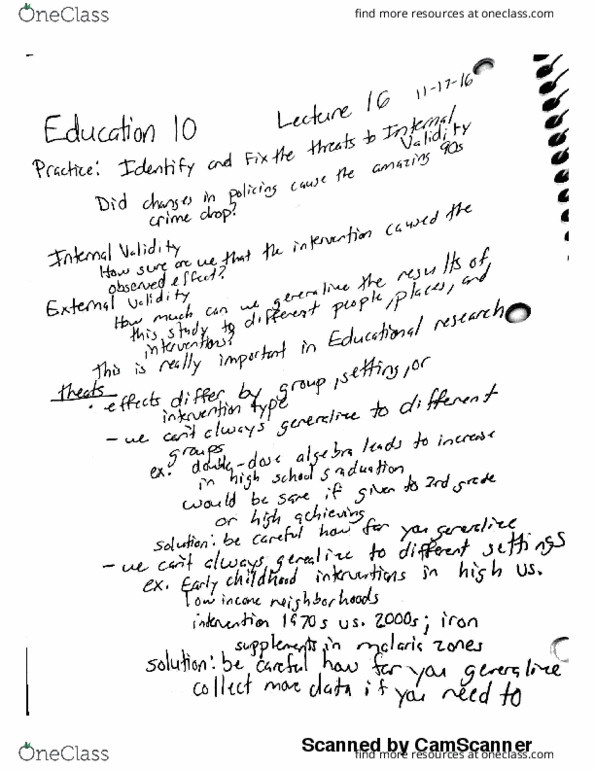 OneClass
find more resources at oneclass.com
Education 10
Lecture 16
11-17-16
Practice: Identify and Fix the threats to Internal
Validity
Did changes in policing cause the amazing 90s
crime drop?
Internal Validity
How sure are we that the intervention caused the
observed effect?
External Validity
How much can we generalize the results of
this study to different people, places, and
interventions?
This is really important in Educational research
threats
• effects differ by group, setting, or
intervention type
- we can't always generalize to different
groups
ex: double-dose algebra leads to increase
in high school graduation
would be same if given to 2nd grade
or high achieving
solution: be careful how far you generalize
- we can't always generalize to different settings
ex. Early childhood interventions in high vs.
low income neighborhoods
intervention 1970s vs. 2000s; iron
supplements in malaria zones
solution: be careful how far you generalize
collect more data if you need to
Scanned by CamScanner
OneClass
find more resources at oneclass.com